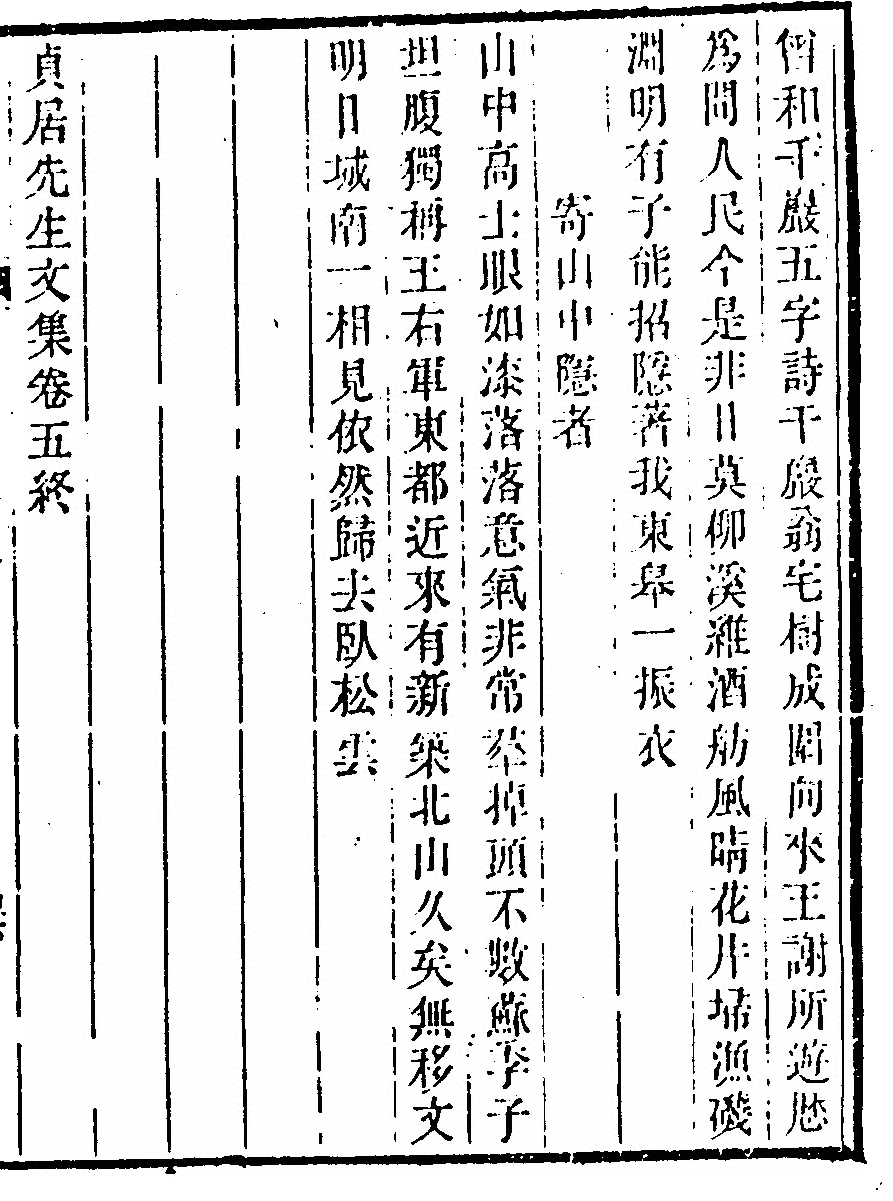 曾和千巖五字詩千巖翁宅樹成圍向來王謝所遊歷
為問人民今是非日莫柳溪維酒舫風晴花片埽漁磯
淵明有子能招隱著我東皋一振衣
寄山中隱者
山中高士眼如漆落落意氣非常羣掉頭不數蘇季子
坦腹獨稱王右軍東都近來有新築北山久矣無移文
明日城南一相見依然歸去臥松雲
貞居先生文集卷五終